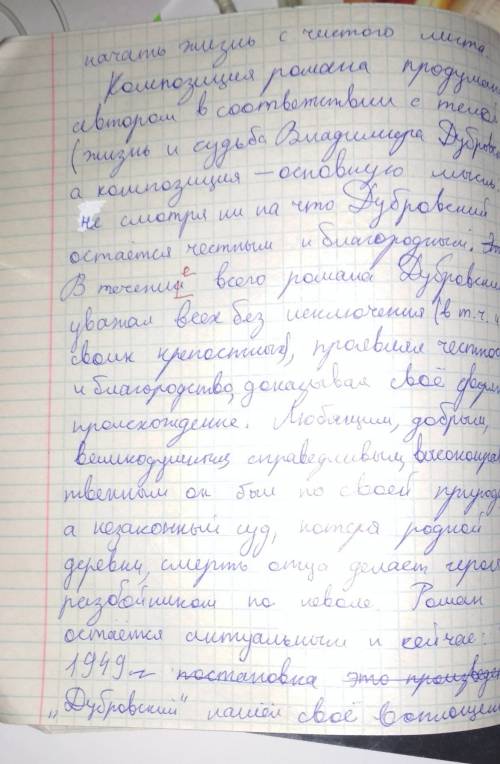 начать жизнь с чистого листа.
Композиция романа продумана
автором в соответствии с темой
(жизнь и судьба Владимира Дубровс
а композиция – основную мысль
не смотря ни на что Дубровский
остаётся честным и благородным. Эт
В течении е всего романа Дубровский
уважал всех без исключения (в т.ч. и
своих крепостных), проявлял честнос
и благородство, доказывая своё дворян
происхождение. Любящим, добрым,
великодушным, справедливым, высоконрав
твенным он был по своей природе
а незаконный суд, потеря родной
деревни, смерть отца делает героя
разбойником по неволе. Роман
остаётся актуальным и сейчас:
1949 г постановка это произведен
"Дубровский" нашел своё воплощен